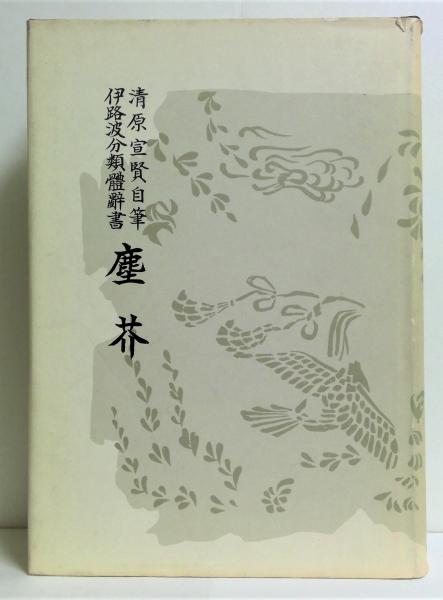 清原宣賢自筆
伊路波分類體辭書
塵芥